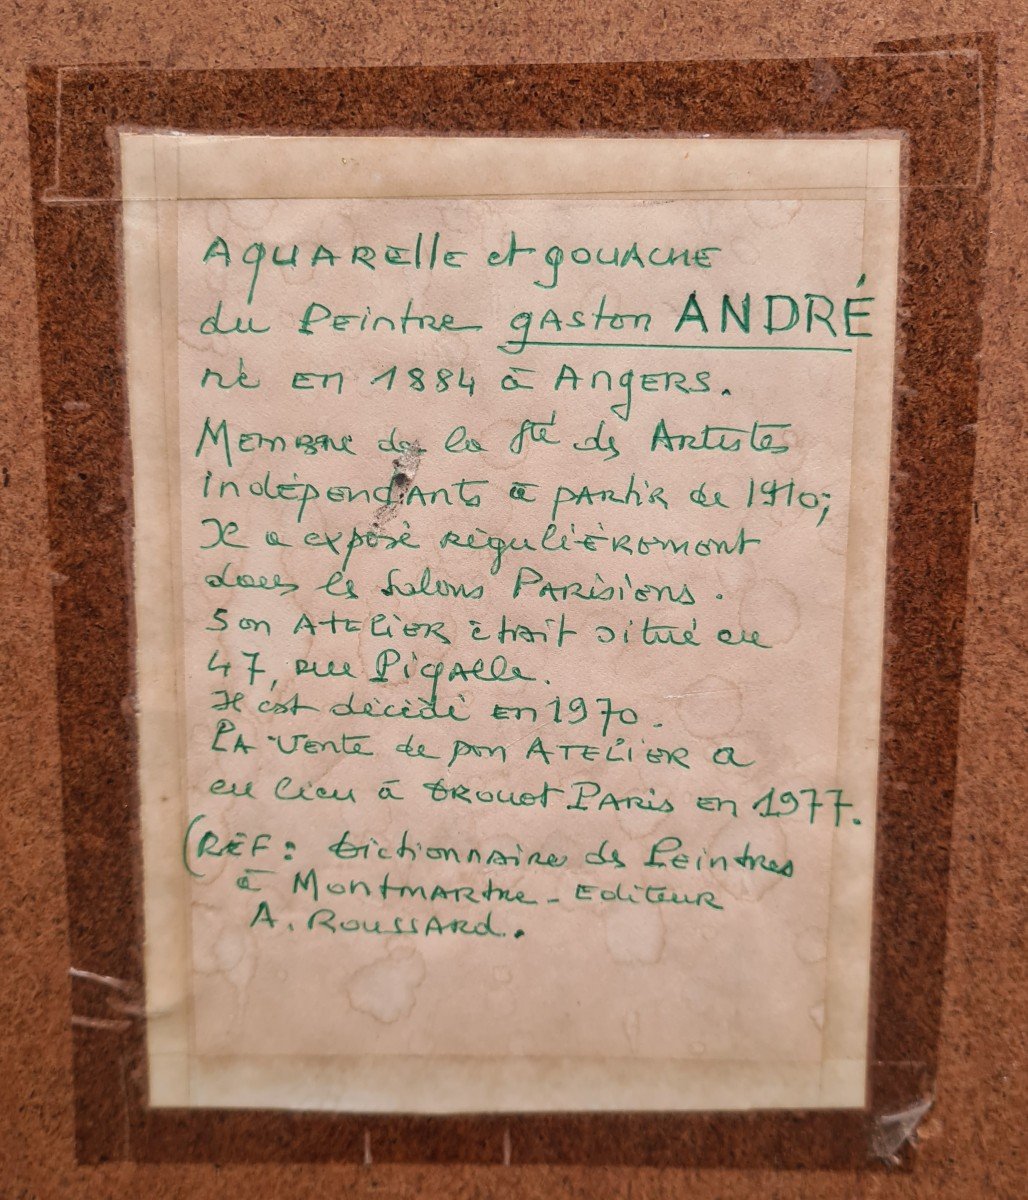 AQUARElle et gouache
du Peintre gaston ANDRÉ
né en 1884 à Angers.
Membre de la Sté des Artistes
indépendants à partir de 1910;
Il a exposé régulièrement
dans les Salons Parisiens.
Son Atelier était situé au
47, rue Pigalle.
Il est décédé en 1970.
La vente de son Atelier a
eu lieu à Drouot Paris en 1977.
(REF: Dictionnaire des Peintres
à Montmartre - Editeur
A. Roussard.